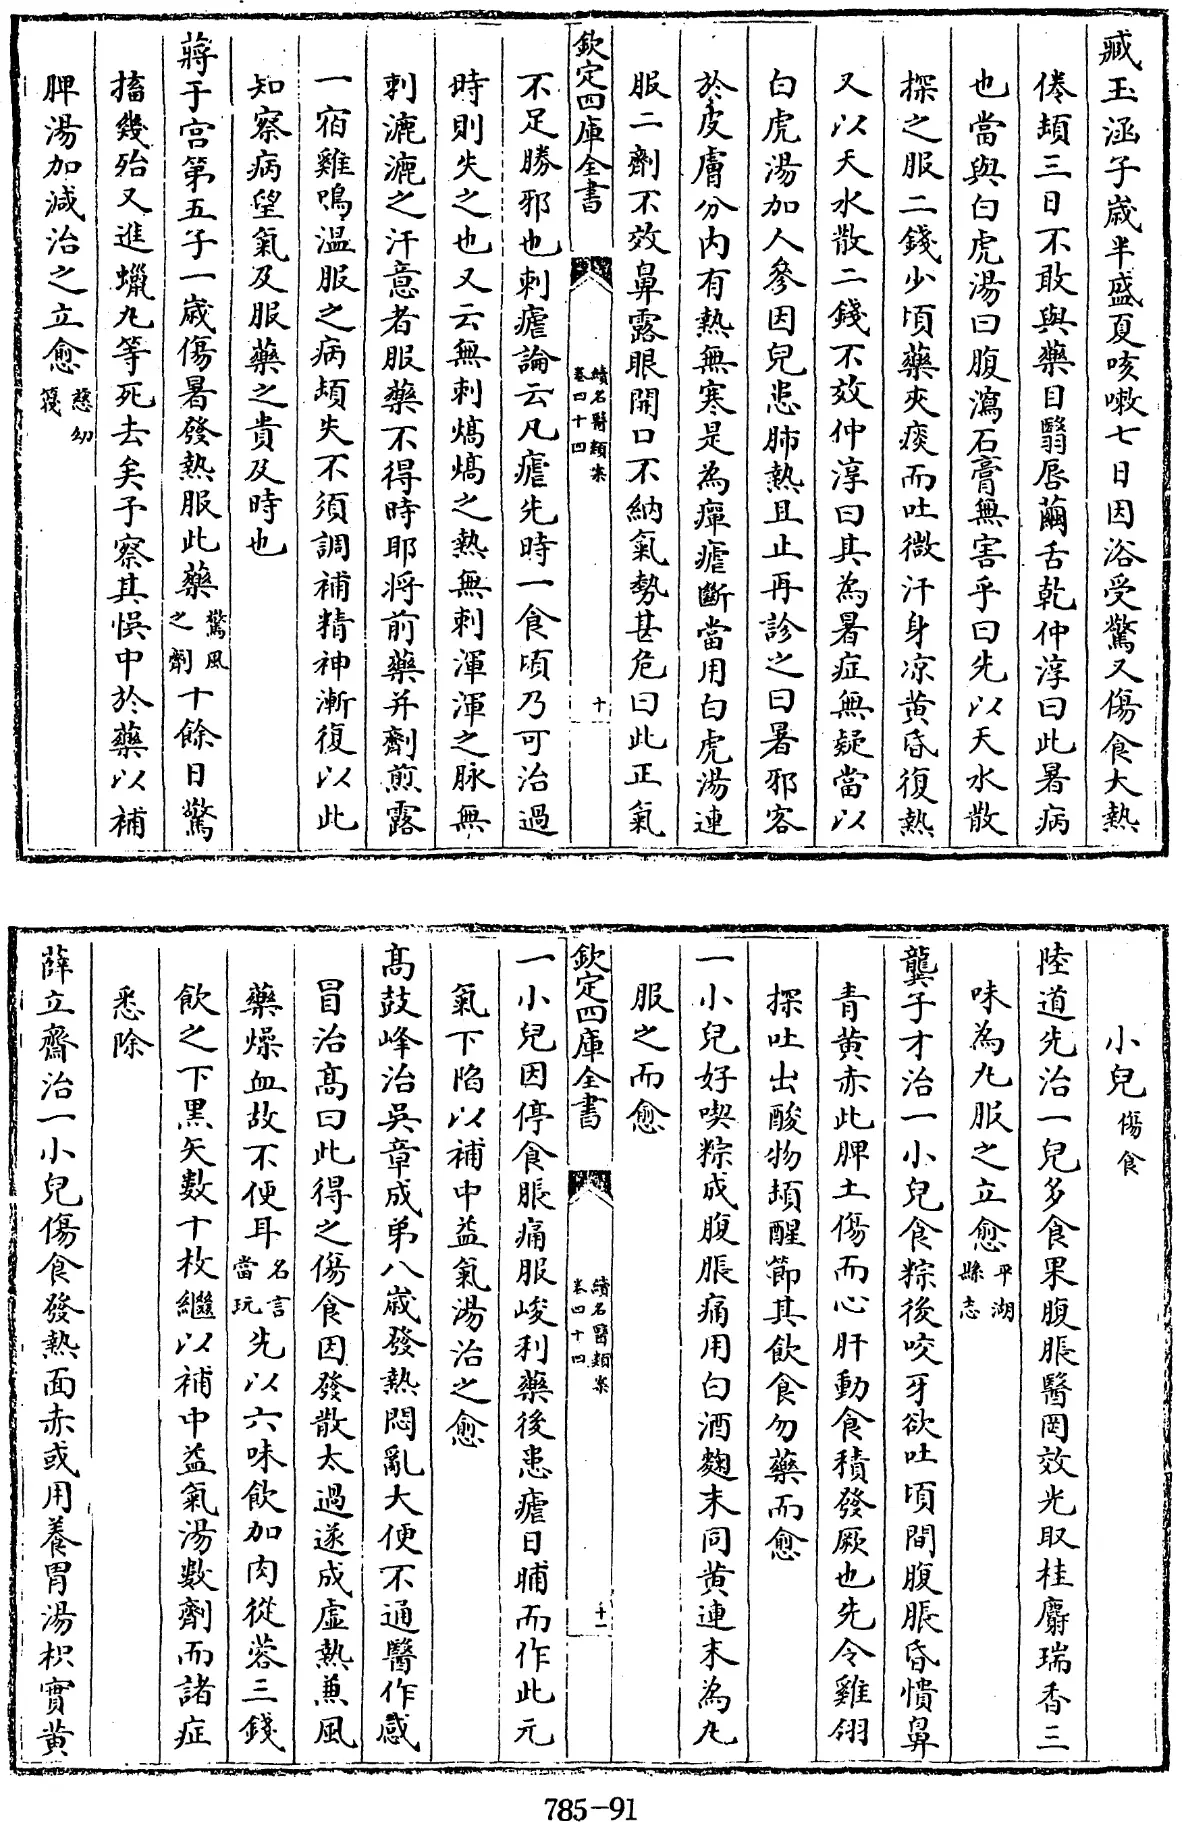 臧玉涵子歲半盛夏咳嗽七日因浴受驚又傷食大熱
倦頓三日不敢與藥目翳唇繭舌乾仲淳曰此暑病
也當與白虎湯曰腹瀉石膏無害乎曰先以天水散
探之服二錢少頃藥夾痰而吐微汗身凉黄昏復熱
又以天水散二錢不效仲淳曰其為暑症無疑當以
白虎湯加人參因兒患肺熱且止再診之曰暑邪客
於皮膚分内有熱無寒是為癉瘧斷當用白虎湯連
服二劑不效鼻露眼開口不納氣勢甚危曰此正氣
欽定四庫全書
續名醫類案
卷四十四
十
不足勝邪也刺瘧論云凡瘧先時一食頃乃可治過
時則失之也又云無刺熇熇之熱無刺渾渾之脉無
刺漉漉之汗意者服藥不得時耶将前藥并劑煎露
一宿雞鳴温服之病頓失不須調補精神漸復以此
知察病望氣及服藥之貴及時也
蔣于宫第五子一歲傷暑發熱服此藥驚風之劑十餘日驚
搐幾殆又進蠟丸等死去矣予察其悞中於藥以補
脾湯加減治之立愈慈幼筏
小兒傷食
陸道先治一兒多食果腹脹醫罔效光取桂麝瑞香三
味為丸服之立愈平湖縣志
龔子才治一小兒食粽後咬牙欲吐頃間腹脹昏憒鼻
青黄赤此脾土傷而心肝動食積發厥也先令雞翎
探吐出酸物頓醒節其飲食勿藥而愈
一小兒好喫粽成腹脹痛用白酒麴末同黄連末為丸
服之而愈
欽定四庫全書
續名醫類案
卷四十四
十一
一小兒因停食脹痛服峻利藥後患瘧日晡而作此元
氣下陷以補中益氣湯治之愈
高鼓峰治吳章成弟八歲發熱悶亂大便不通醫作感
冒治高曰此得之傷食因發散太過遂成虛熱兼風
藥燥血故不便耳名言當玩先以六味飲加肉從蓉三錢
飲之下黑矢數十枚繼以補中益氣湯數劑而諸症
悉除
薛立齋治一小兒傷食發熱面赤或用養胃湯枳實黄
785-91